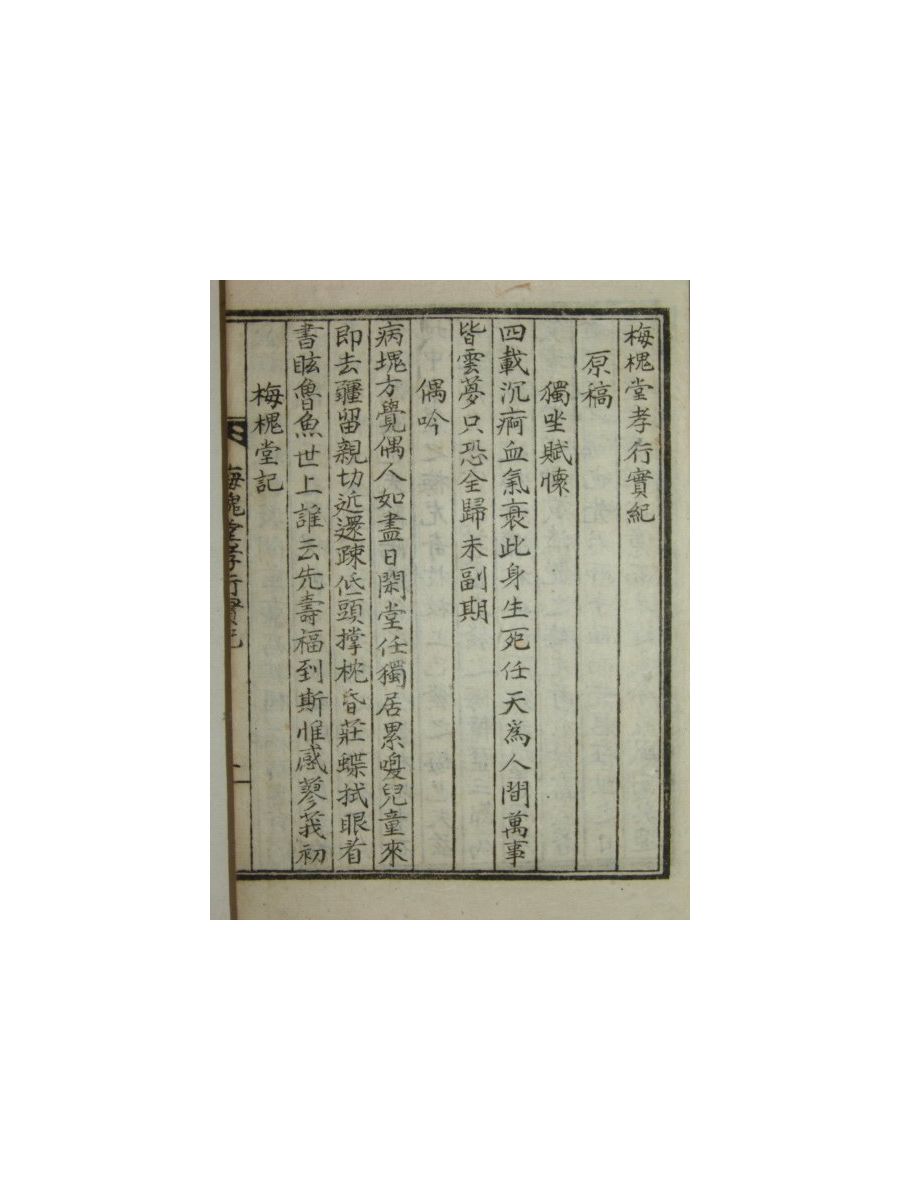 梅槐堂孝行實紀
原稿
獨坐賦懷
四載沉痾血氣衰此身生死任天爲人間萬事
皆雲夢只恐全歸未副期
偶吟
病塊方覺偶人如盡日閑堂任獨居累嗄兒童來
即去疆留親切近還疎低頭撑枕昏莊蝶拭眼看
書眩魯魚世上誰云先壽福到斯惟感蓼莪初
梅槐堂記
梅槐堂孝行實紀
一